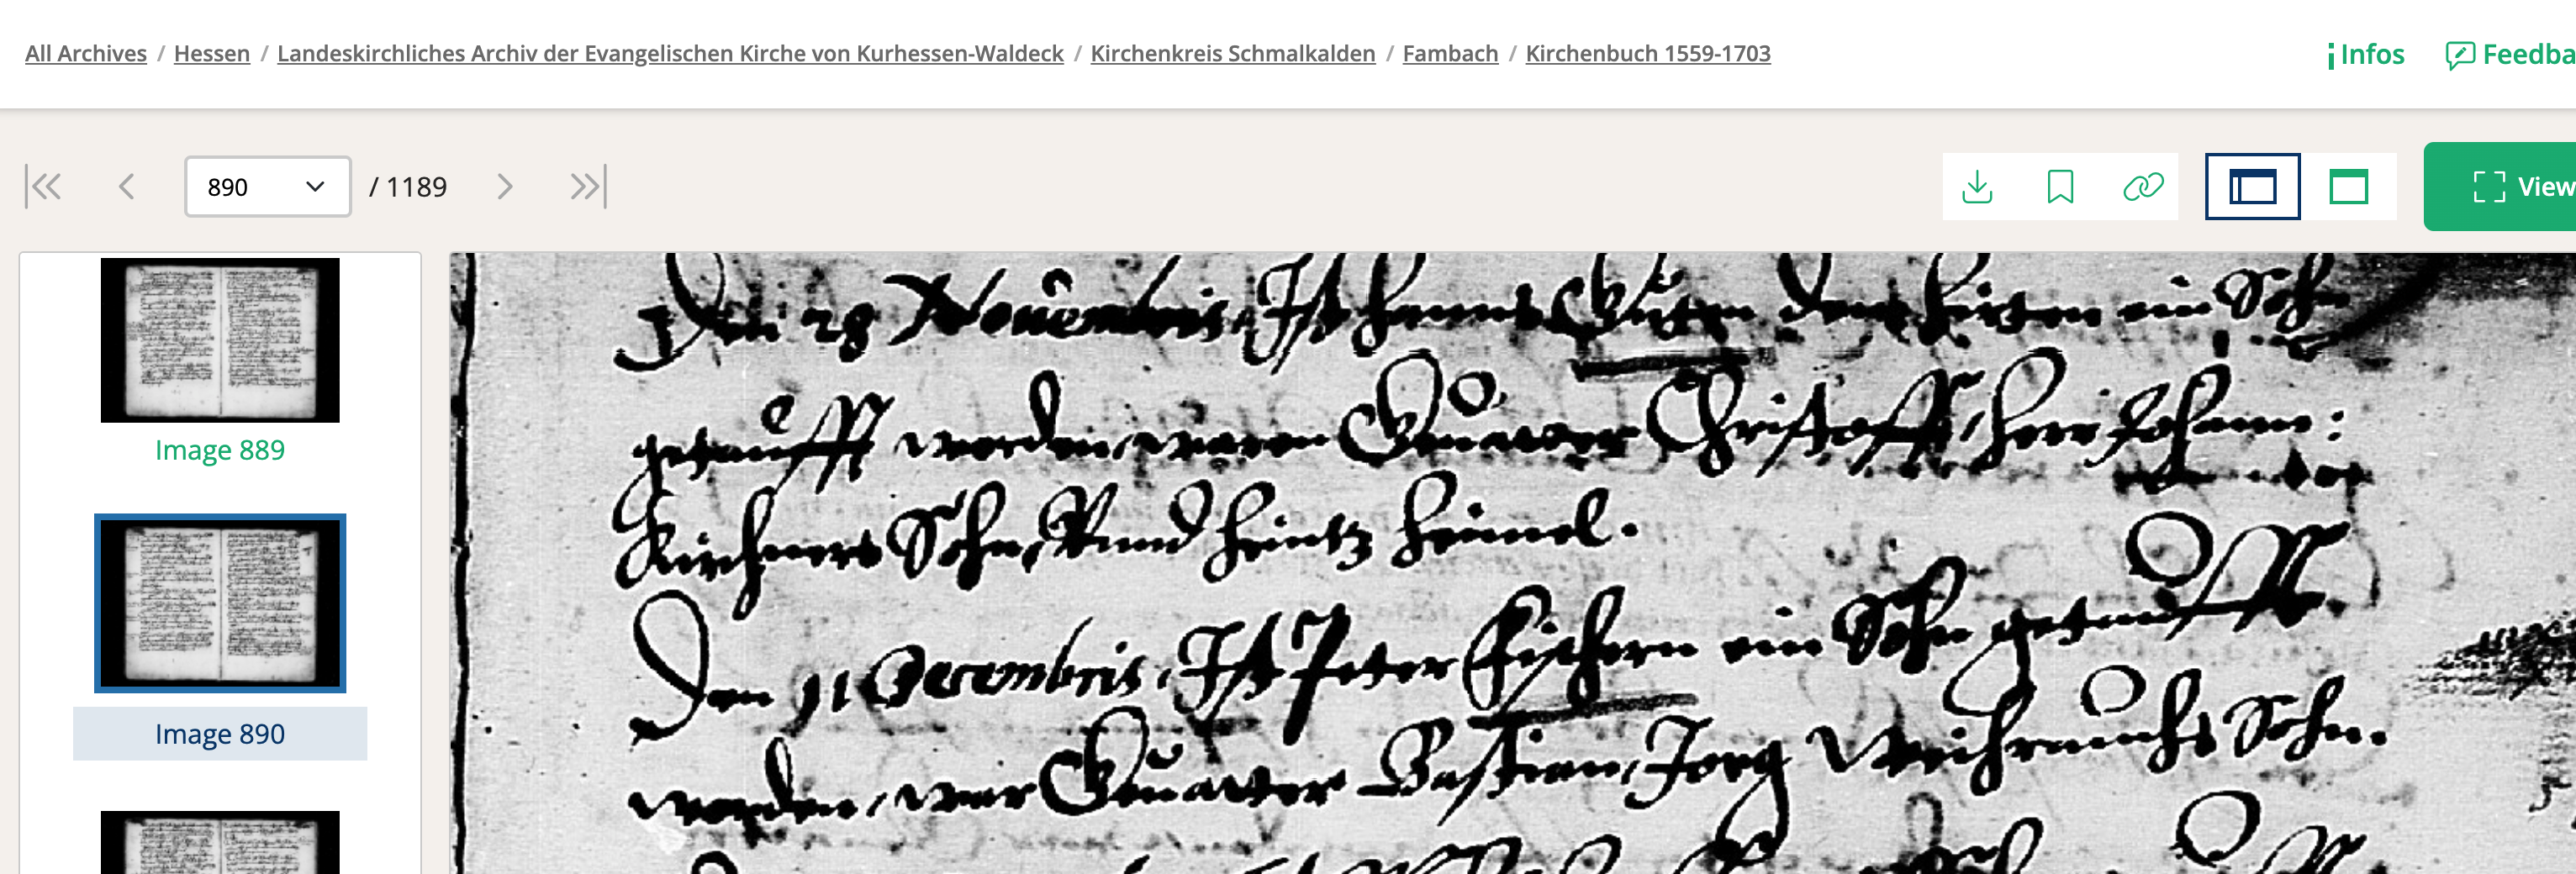 All Archives / Hessen / Landeskirchliches Archiv der Evangelischen Kirche von Kurhessen-Waldeck / Kirchenkreis Schmalkalden / Fambach / Kirchenbuch 1559-1703
Infos
Feedba
890 / 1189
View
Image 889
Image 890
Den 28 Nouembris, Ist Hanns dem Hirten ein Sohn
getaufft worden, waren Geuatter Christoff, Herr Johann:
Kirchners Sohn, Vnnd Heintz Heimel.
Den 11 Decembris, Ist Peter Fischern ein Sohn getaufft
worden, war Geuatter Bastian, Jorg Weihrauchs Sohn.